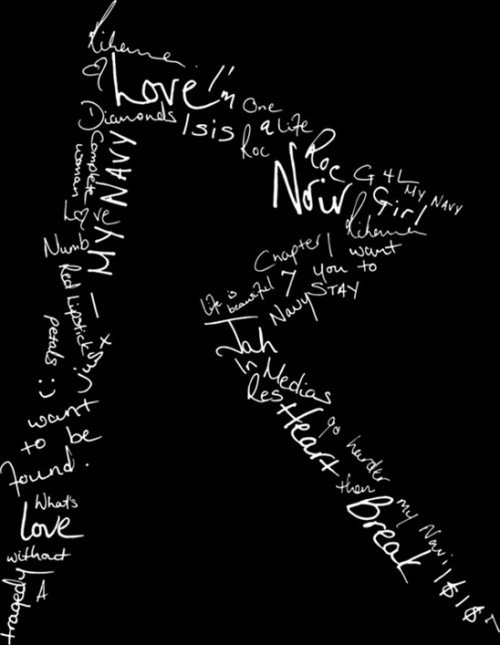 Rihanna
Love
I'm
One
Diamonds
Isis
a Life
Roc
Roc
G4L
Noir
MY NAVY
Girl
Rihanna
Complete
woman
MY NAVY
Love
Numb
Chapter
7
I want
you to
STAY
Life is
beautiful
Navy
Red lipstick
petals
Jah
In Medias
Res
I just
want
to be
found.
Heart
go harder
than
my Navi'
Break
What's
Love
without
A
tragedy